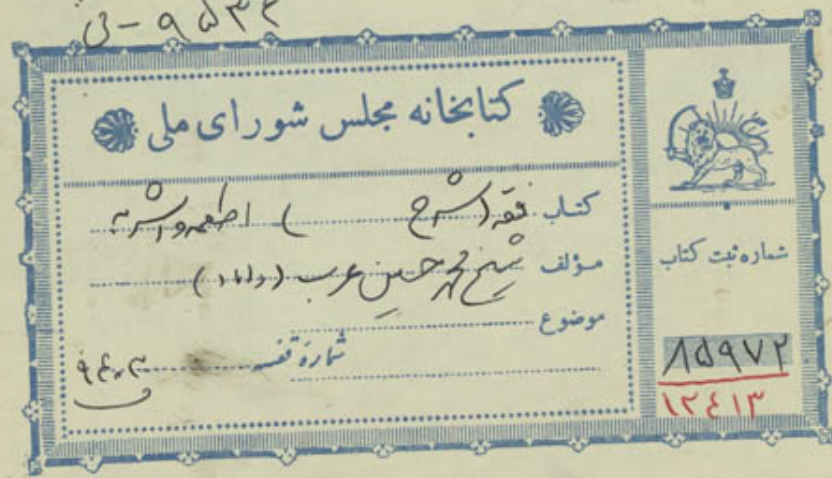 کتابخانه مجلس شورای ملی
کتاب فقه (شرح ) اطعمه و اشربه
مؤلف شیخ محمد حسین عرب
موضوع
شماره قفسه
شماره ثبت کتاب
۸۵۹۷۲
۱۲۴۱۳